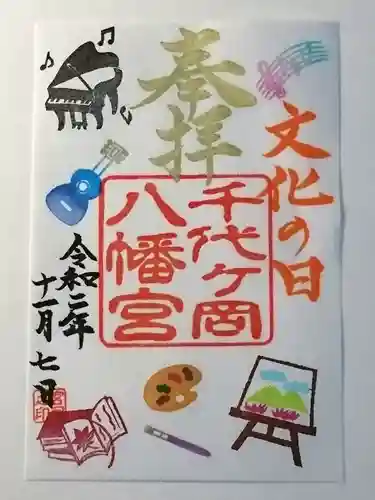 文化の日
奉拝
千代ヶ岡
八幡宮
令和二年
十一月七日